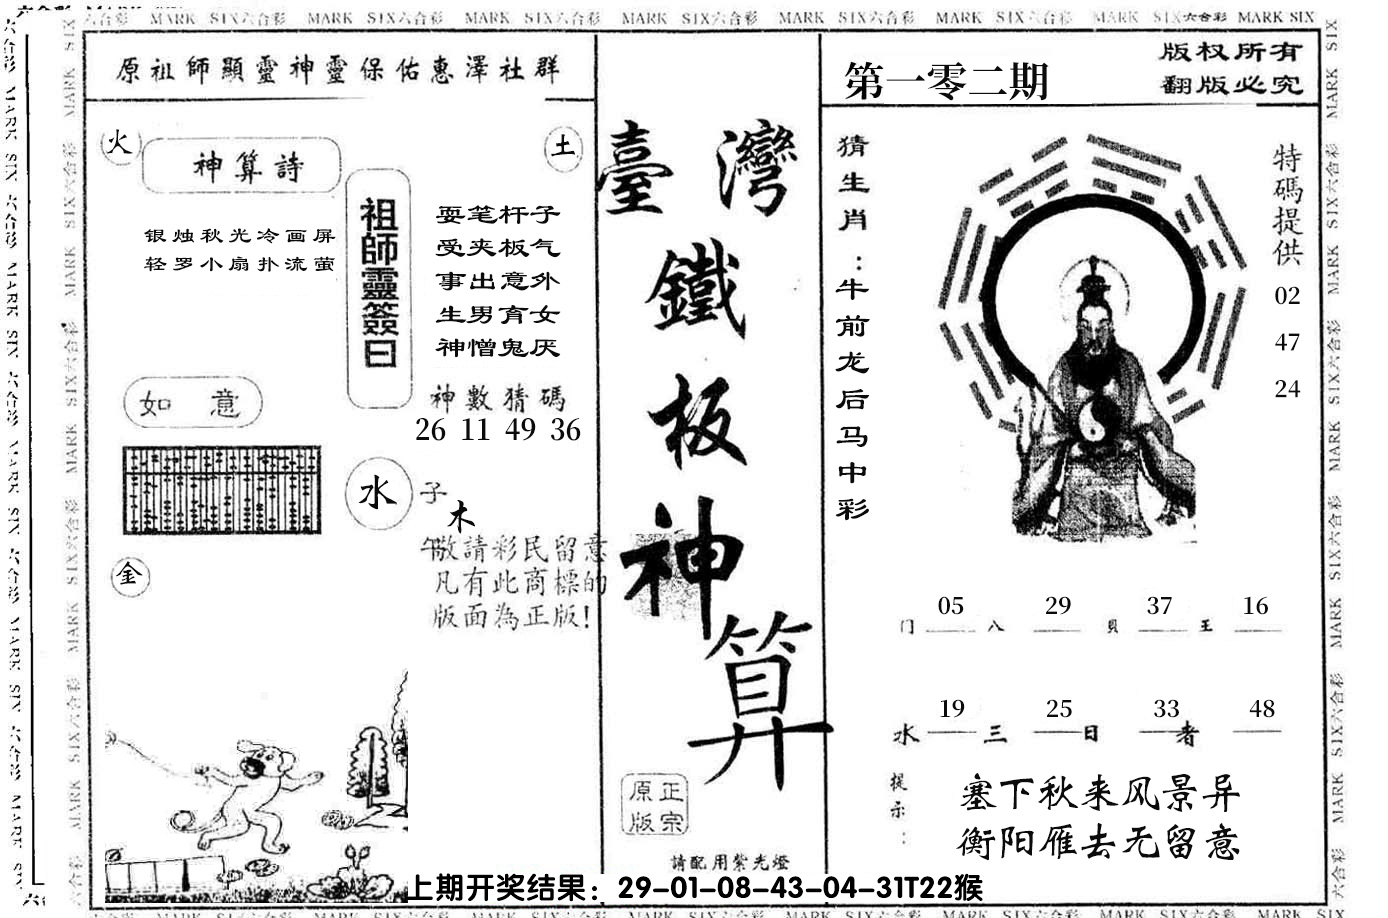 MARK SIX六合彩 MARK SIX六合彩 MARK SIX六合彩 MARK SIX六合彩 MARK SIX六合彩 MARK SIX六合彩 MARK SIX六合彩 MARK SIX
原祖師顯靈神靈保佑惠澤社群
火
神算詩
土
银烛秋光冷画屏
轻罗小扇扑流萤
祖師靈簽曰
耍笔杆子
受夹板气
事出意外
生男育女
神憎鬼厌
神數猜碼
26 11 49 36
如意
水
子
木
午
金
敬請彩民留意
凡有此商標的
版面為正版!
臺灣
鐵
板
神
算
正宗
原版
請配用紫光燈
第一零二期
版权所有
翻版必究
猜生肖:牛前龙后马中彩
特碼提供
02
47
24
05 29 37 16
门 八 貝 王
19 25 33 48
水 三 日 者
提示:
塞下秋来风景异
衡阳雁去无留意
上期开奖结果：29-01-08-43-04-31T22猴